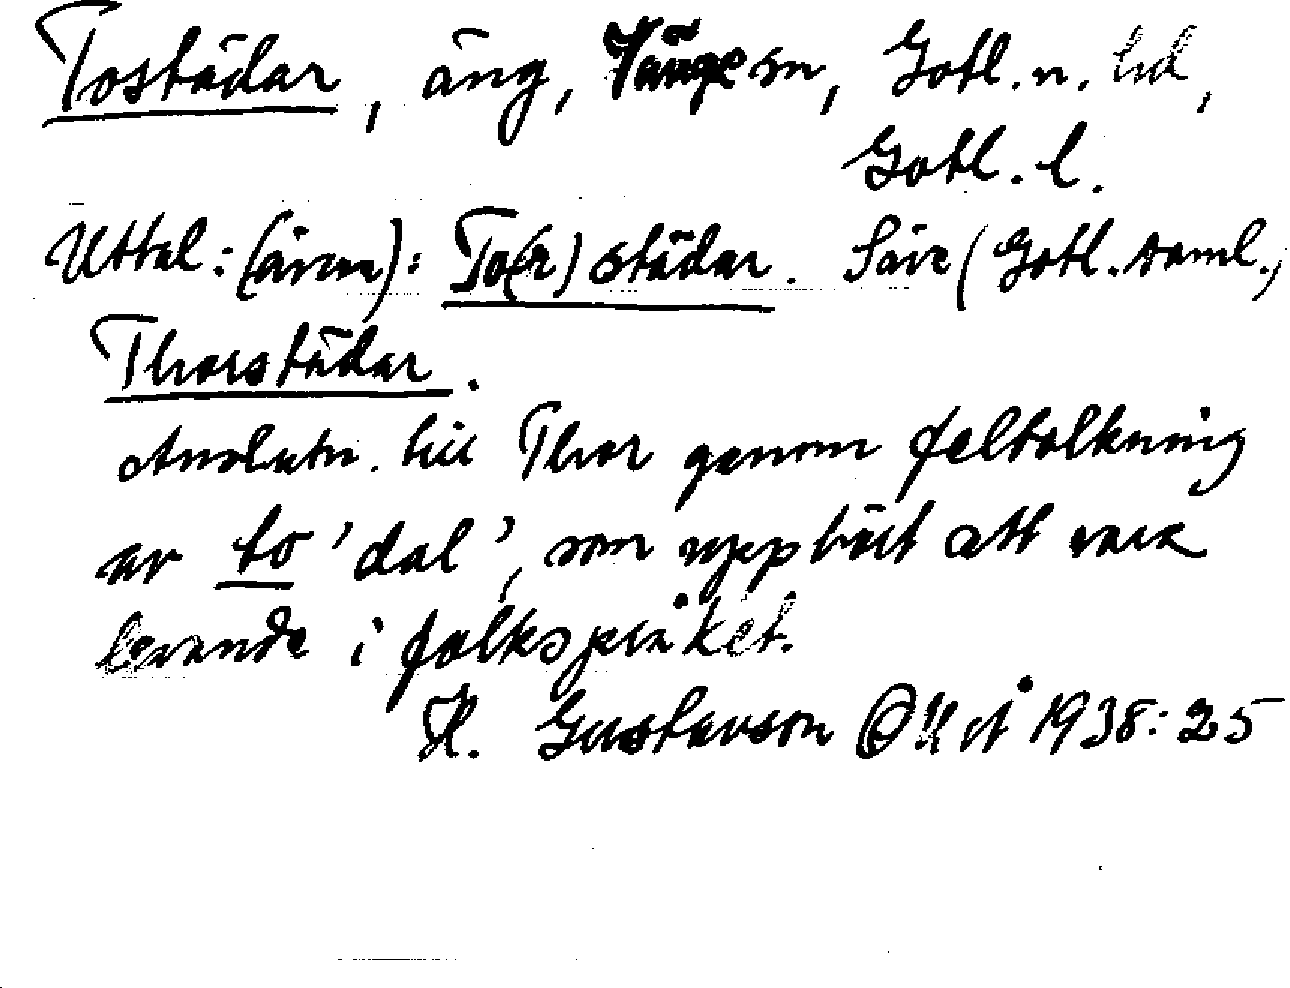 Tostädar, äng, Vänge sn, Gotl. n. hd,
Gotl. l.
Uttal: (även): To(r)städar. Säve (Gotl. saml.,
Thorstädar.
Anslutn. till Thor genom feltolkning
av to 'dal', som upphört att vara
levande i folkspråket.
H. Gustavson 1938:25